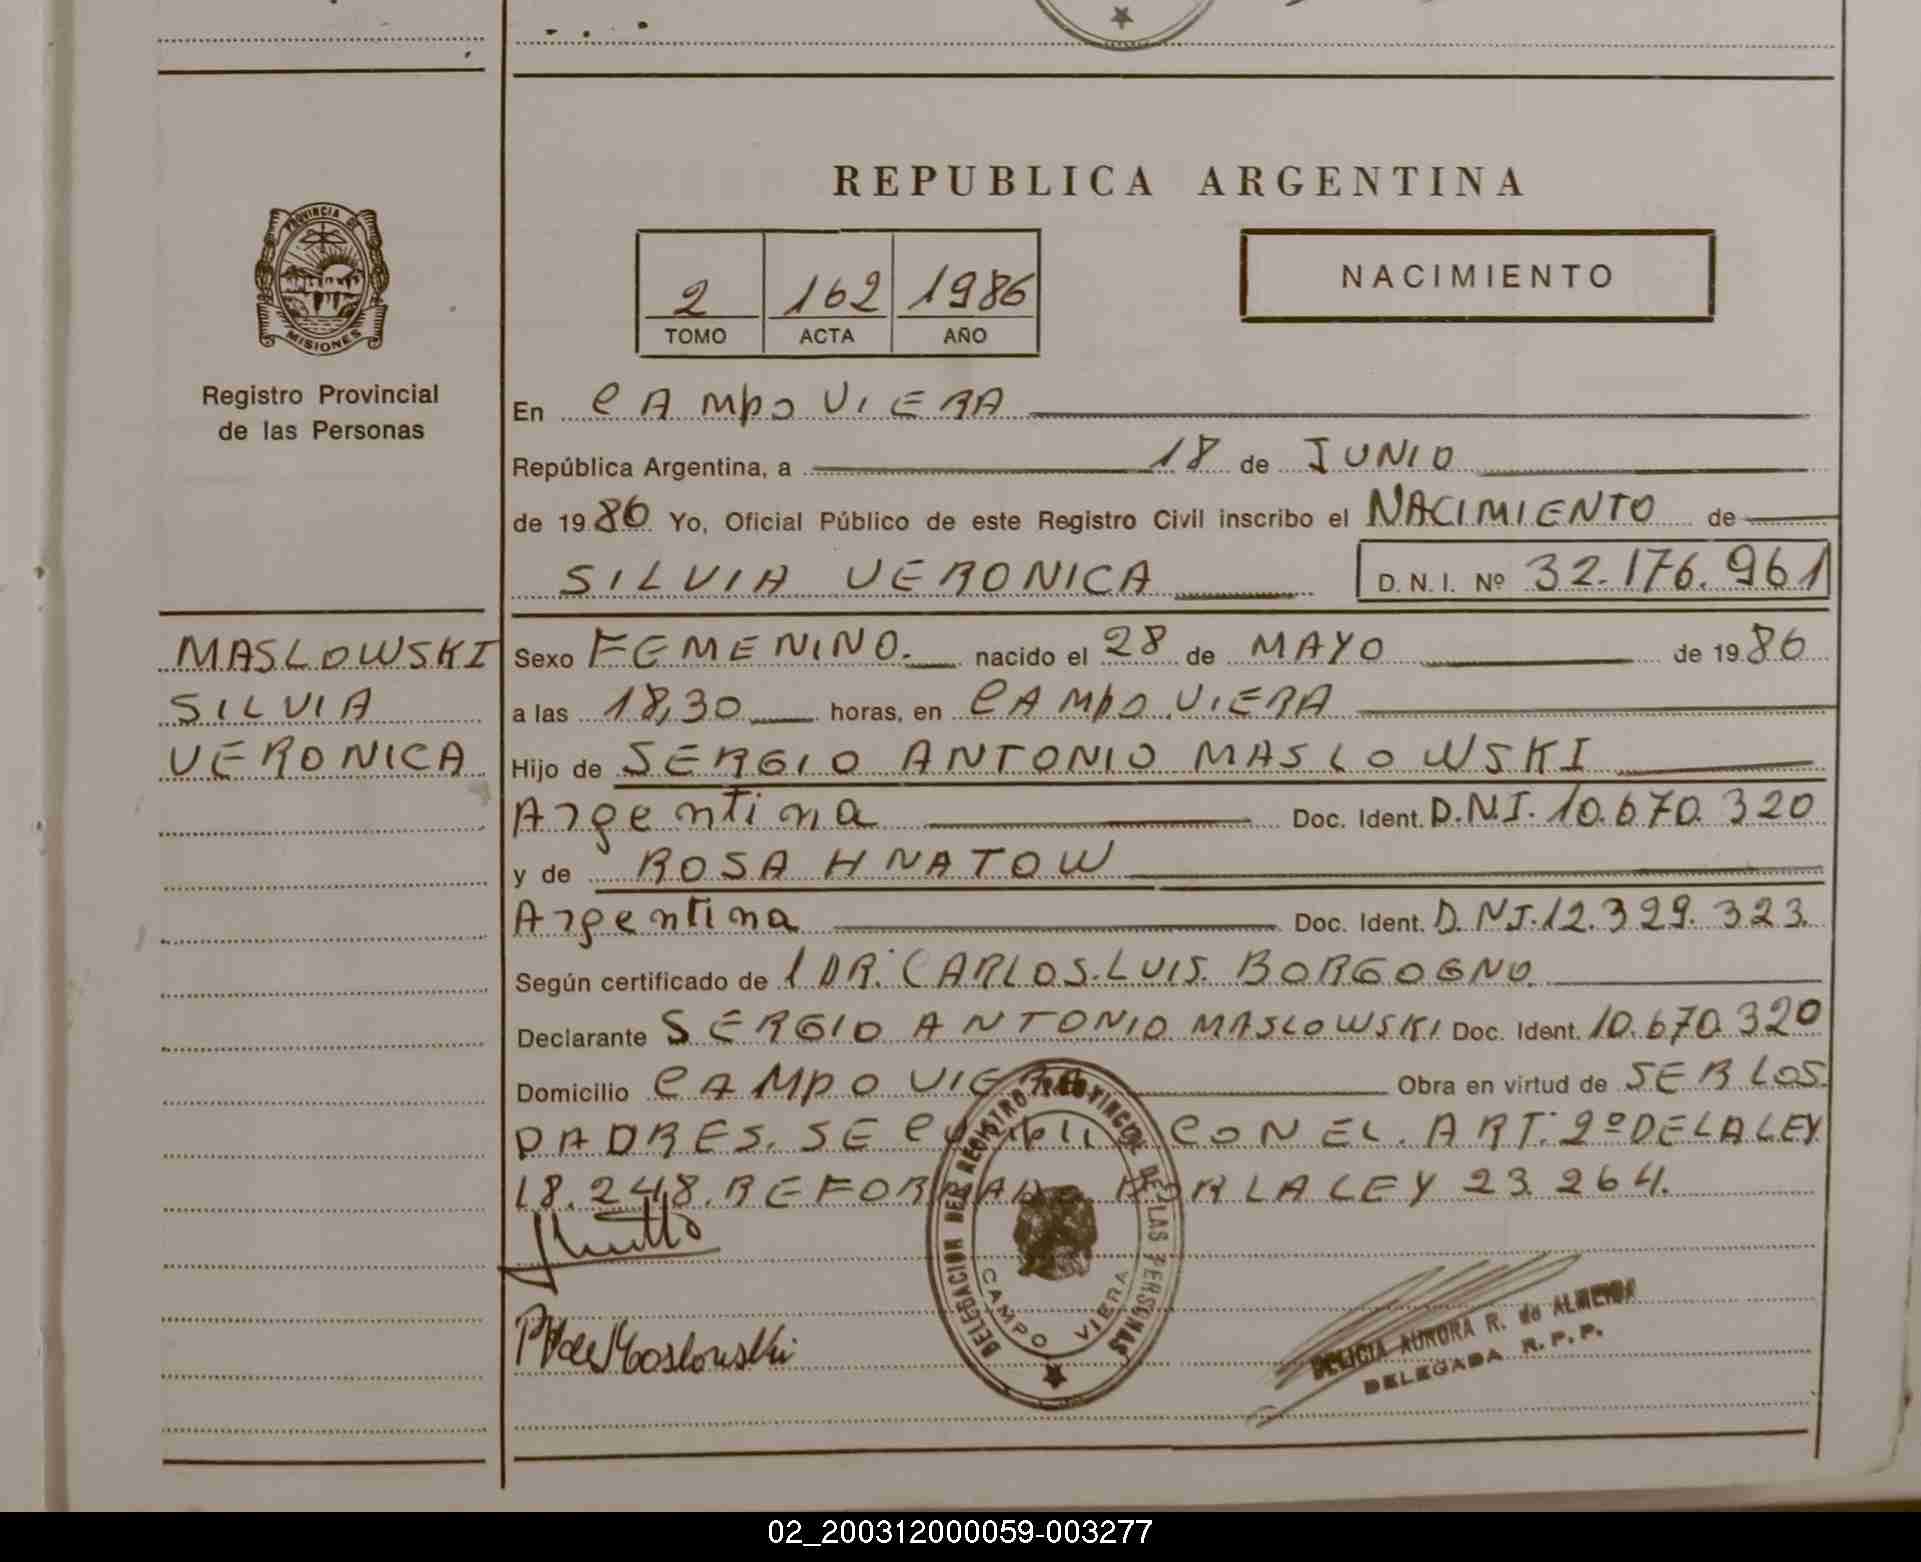 REPUBLICA ARGENTINA
PROVINCIA DE
MISIONES
Registro Provincial
de las Personas
2 162 1986
TOMO ACTA AÑO
NACIMIENTO
En CAMPO VIERA
República Argentina, a 18 de JUNIO
de 1986 Yo, Oficial Público de este Registro Civil inscribo el NACIMIENTO de
SILVIA VERONICA D.N.I. Nº 32.176.961
MASLOWSKI
SILVIA
VERONICA
Sexo FEMENINO. nacido el 28 de MAYO de 1986
a las 18,30 horas, en CAMPO VIERA
Hijo de SERGIO ANTONIO MASLOWSKI
Argentina Doc. Ident. D.N.I. 10.670.320
y de ROSA HNATOW
Argentina Doc. Ident. D.NI.12.329.323.
Según certificado de 1 DR. CARLOS.LUIS. BORGOGNO.
Declarante SERGIO ANTONIO MASLOWSKI Doc. Ident. 10.670.320
Domicilio CAMPO VIERA Obra en virtud de SER LOS
PADRES. SE CON EL. ART. 2º DE LA LEY
18.248. REFORMADO POR LA LEY 23.264.
DELEGACION DEL REGISTRO PROVINCIAL DE LAS PERSONAS
CAMPO VIERA
DELICIA AURORA R. de ALMEIDA
DELEGADA R.P.P.
02_200312000059-003277